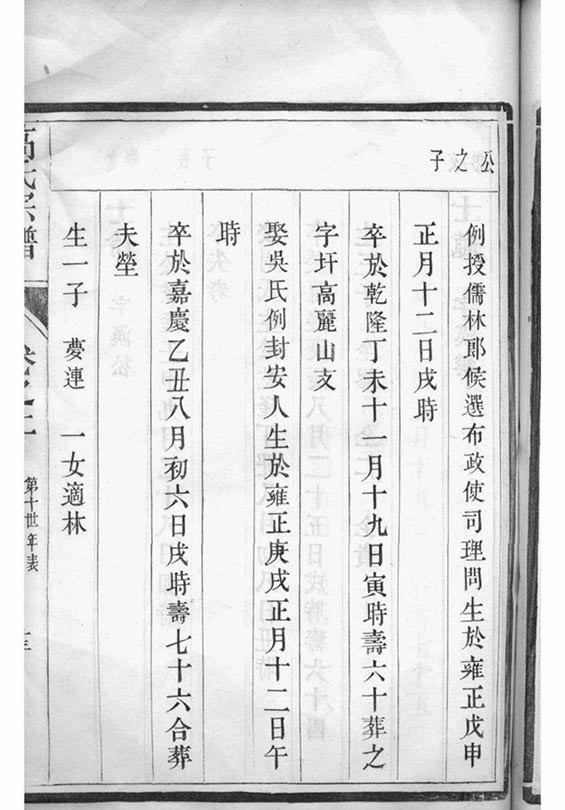 公之子
例授儒林郎候選布政使司理問生於雍正戊申
正月十二日戌時
卒於乾隆丁未十一月十九日寅時壽六十葬之
字圩高麗山支
娶吳氏例封安人生於雍正庚戌正月十二日午
時
卒於嘉慶乙丑八月初六日戌時壽七十六合葬
夫塋
生一子 夢連 一女適林
氏宗譜
卷之
第十世年表